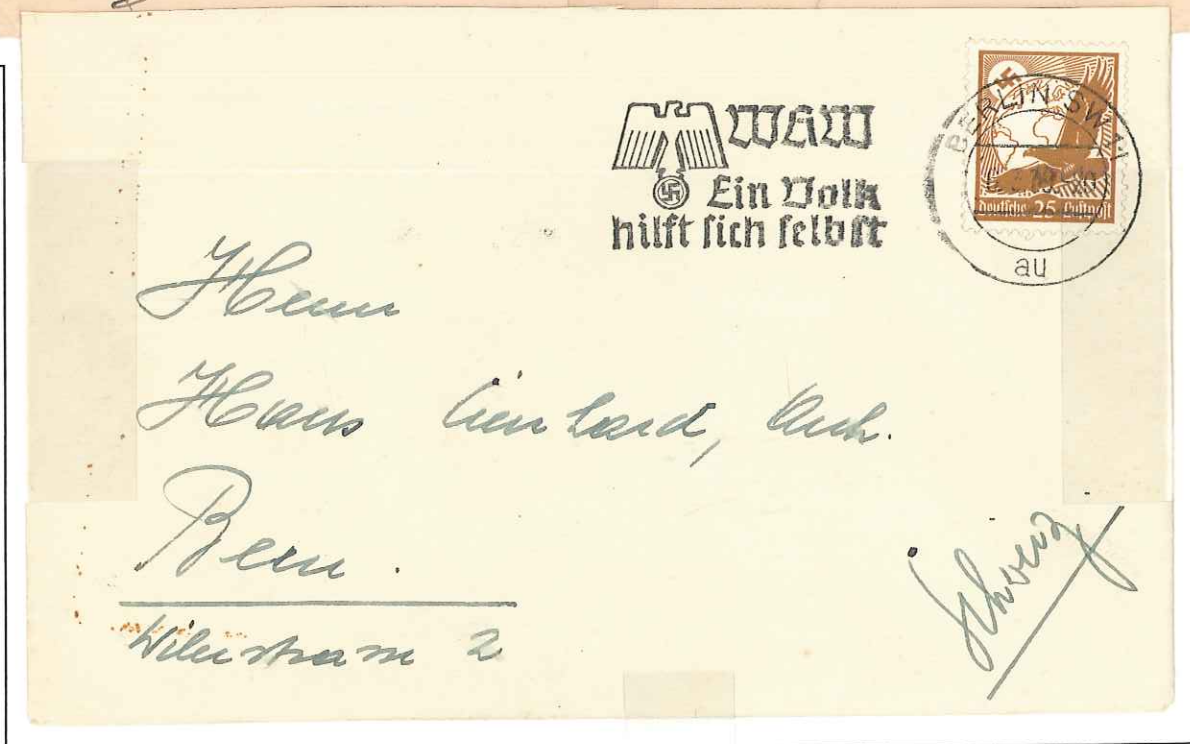 WHW
Ein Volk
hilft sich selbst
BERLIN SW
deutsche 25 Luftpost
au
Herrn
Hans Lienhard, Arch.
Bern.
strasse 2
Schweiz